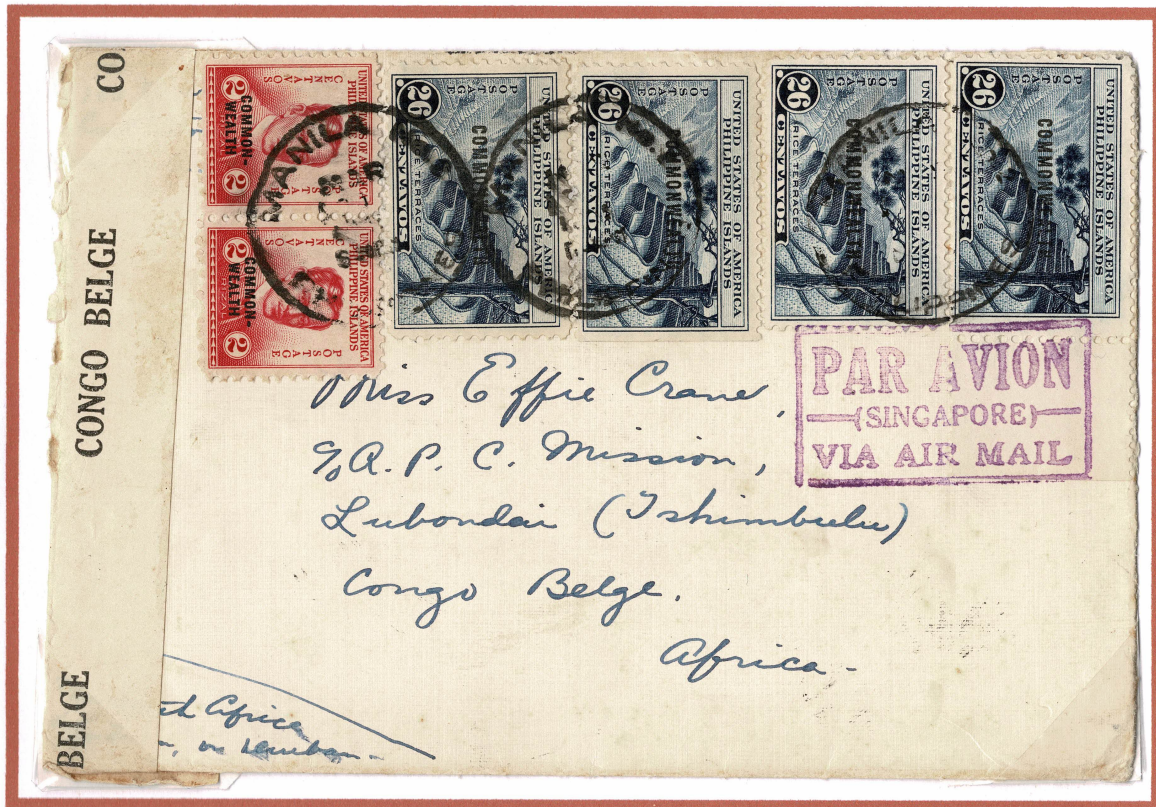 CO
CONGO BELGE
BELGE
UNITED STATES OF AMERICA
PHILIPPINE ISLANDS
POSTAGE
2 CENTAVOS 2
RIZAL
COMMON-
WEALTH
UNITED STATES OF AMERICA
PHILIPPINE ISLANDS
POSTAGE
2 CENTAVOS 2
RIZAL
COMMON-
WEALTH
UNITED STATES OF AMERICA
PHILIPPINE ISLANDS
POSTAGE
COMMONWEALTH
RICE TERRACES
26 CENTAVOS
UNITED STATES OF AMERICA
PHILIPPINE ISLANDS
POSTAGE
COMMONWEALTH
RICE TERRACES
26 CENTAVOS
UNITED STATES OF AMERICA
PHILIPPINE ISLANDS
POSTAGE
COMMONWEALTH
RICE TERRACES
26 CENTAVOS
UNITED STATES OF AMERICA
PHILIPPINE ISLANDS
POSTAGE
COMMONWEALTH
RICE TERRACES
26 CENTAVOS
MANILA
PAR AVION
(SINGAPORE)
VIA AIR MAIL
Miss Effie Crane,
c/o A. P. C. Mission,
Lubondai (Tshimbulu)
Congo Belge.
Africa -
Africa